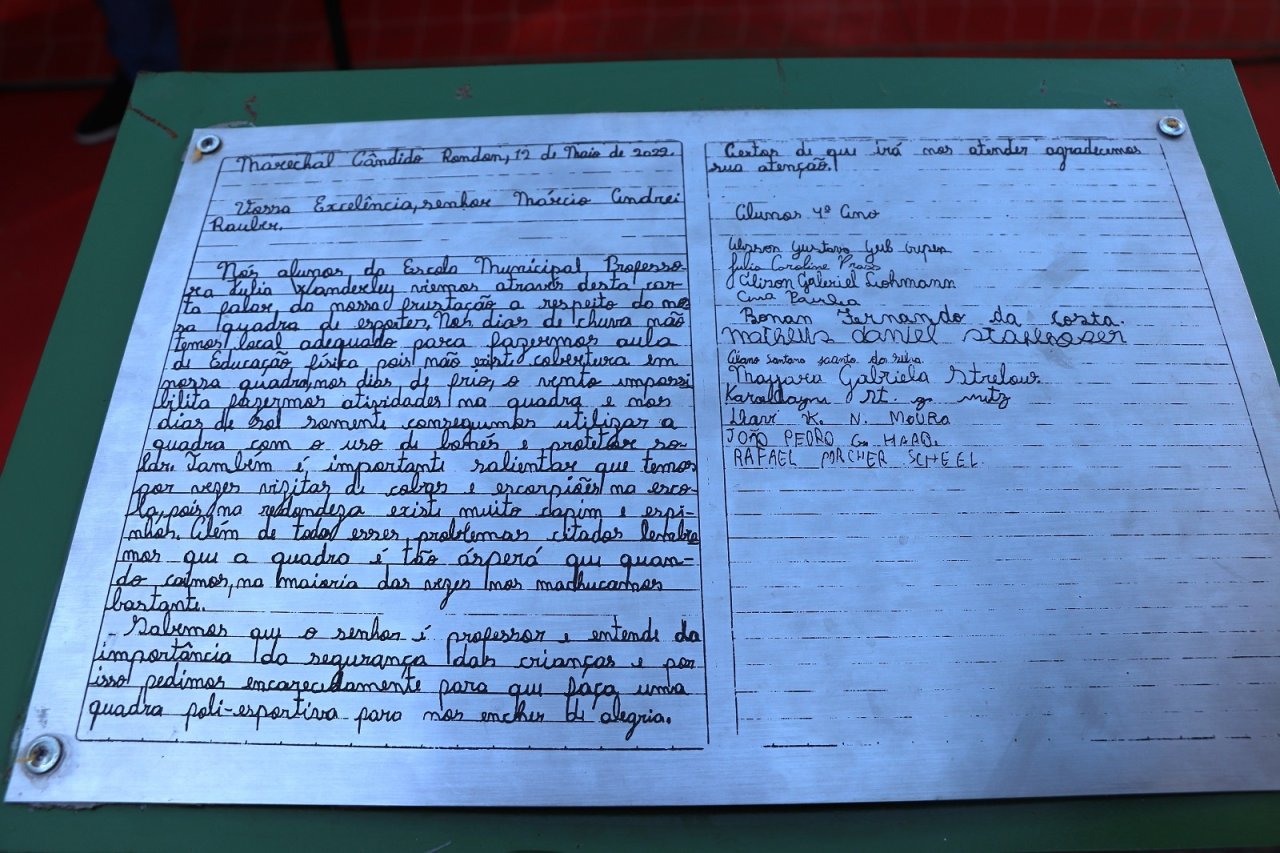 Marechal Cândido Rondon, 12 de Maio de 2022.
Vossa Excelência, senhor Márcio Andrei
Rauber.
Nós alunos da Escola Municipal Professo-
ra Julia Wanderley viemos através desta car-
ta falar da nossa frustação a respeito da nos
sa quadra de esportes. Nos dias de chuva não
temos local adequado para fazermos aula
de Educação física pois não existe cobertura em
nossa quadra, nos dias de frio, o vento impossi
bilita fazermos atividades na quadra e nos
dias de sol somente conseguimos utilizar a
quadra com o uso de bonés e protetor so-
lar. Também é importante salientar que temos
por vezes vizitas de cobras e escorpiões na esco-
la, pois na redondeza existe muito capim e espi-
nhos. Além de todos esses problemas citados lembra
mos que a quadra é tão ásperá que quan-
do caímos, na maioria das vezes nos machucamos
bastante.
Sabemos que o senhor é professor e entende da
importância da segurança das crianças e por
isso pedimos encarecidamente para que faça uma
quadra poli-esportiva para nos encher de alegria.
Certos de que irá nos atender agradecemos
sua atenção.
Alunos 4º Ano
Alysson Gustavo
Julia Caroline
Alison Gabriel Lohmann
Ana Paula
Renan Fernando da Costa.
Matheus daniel
santo da silva
Mayara Gabriela Strelow
K. N. MOURA
JOÃO PEDRO G. HAAB.
RAFAEL PORCHER SCHEEL.